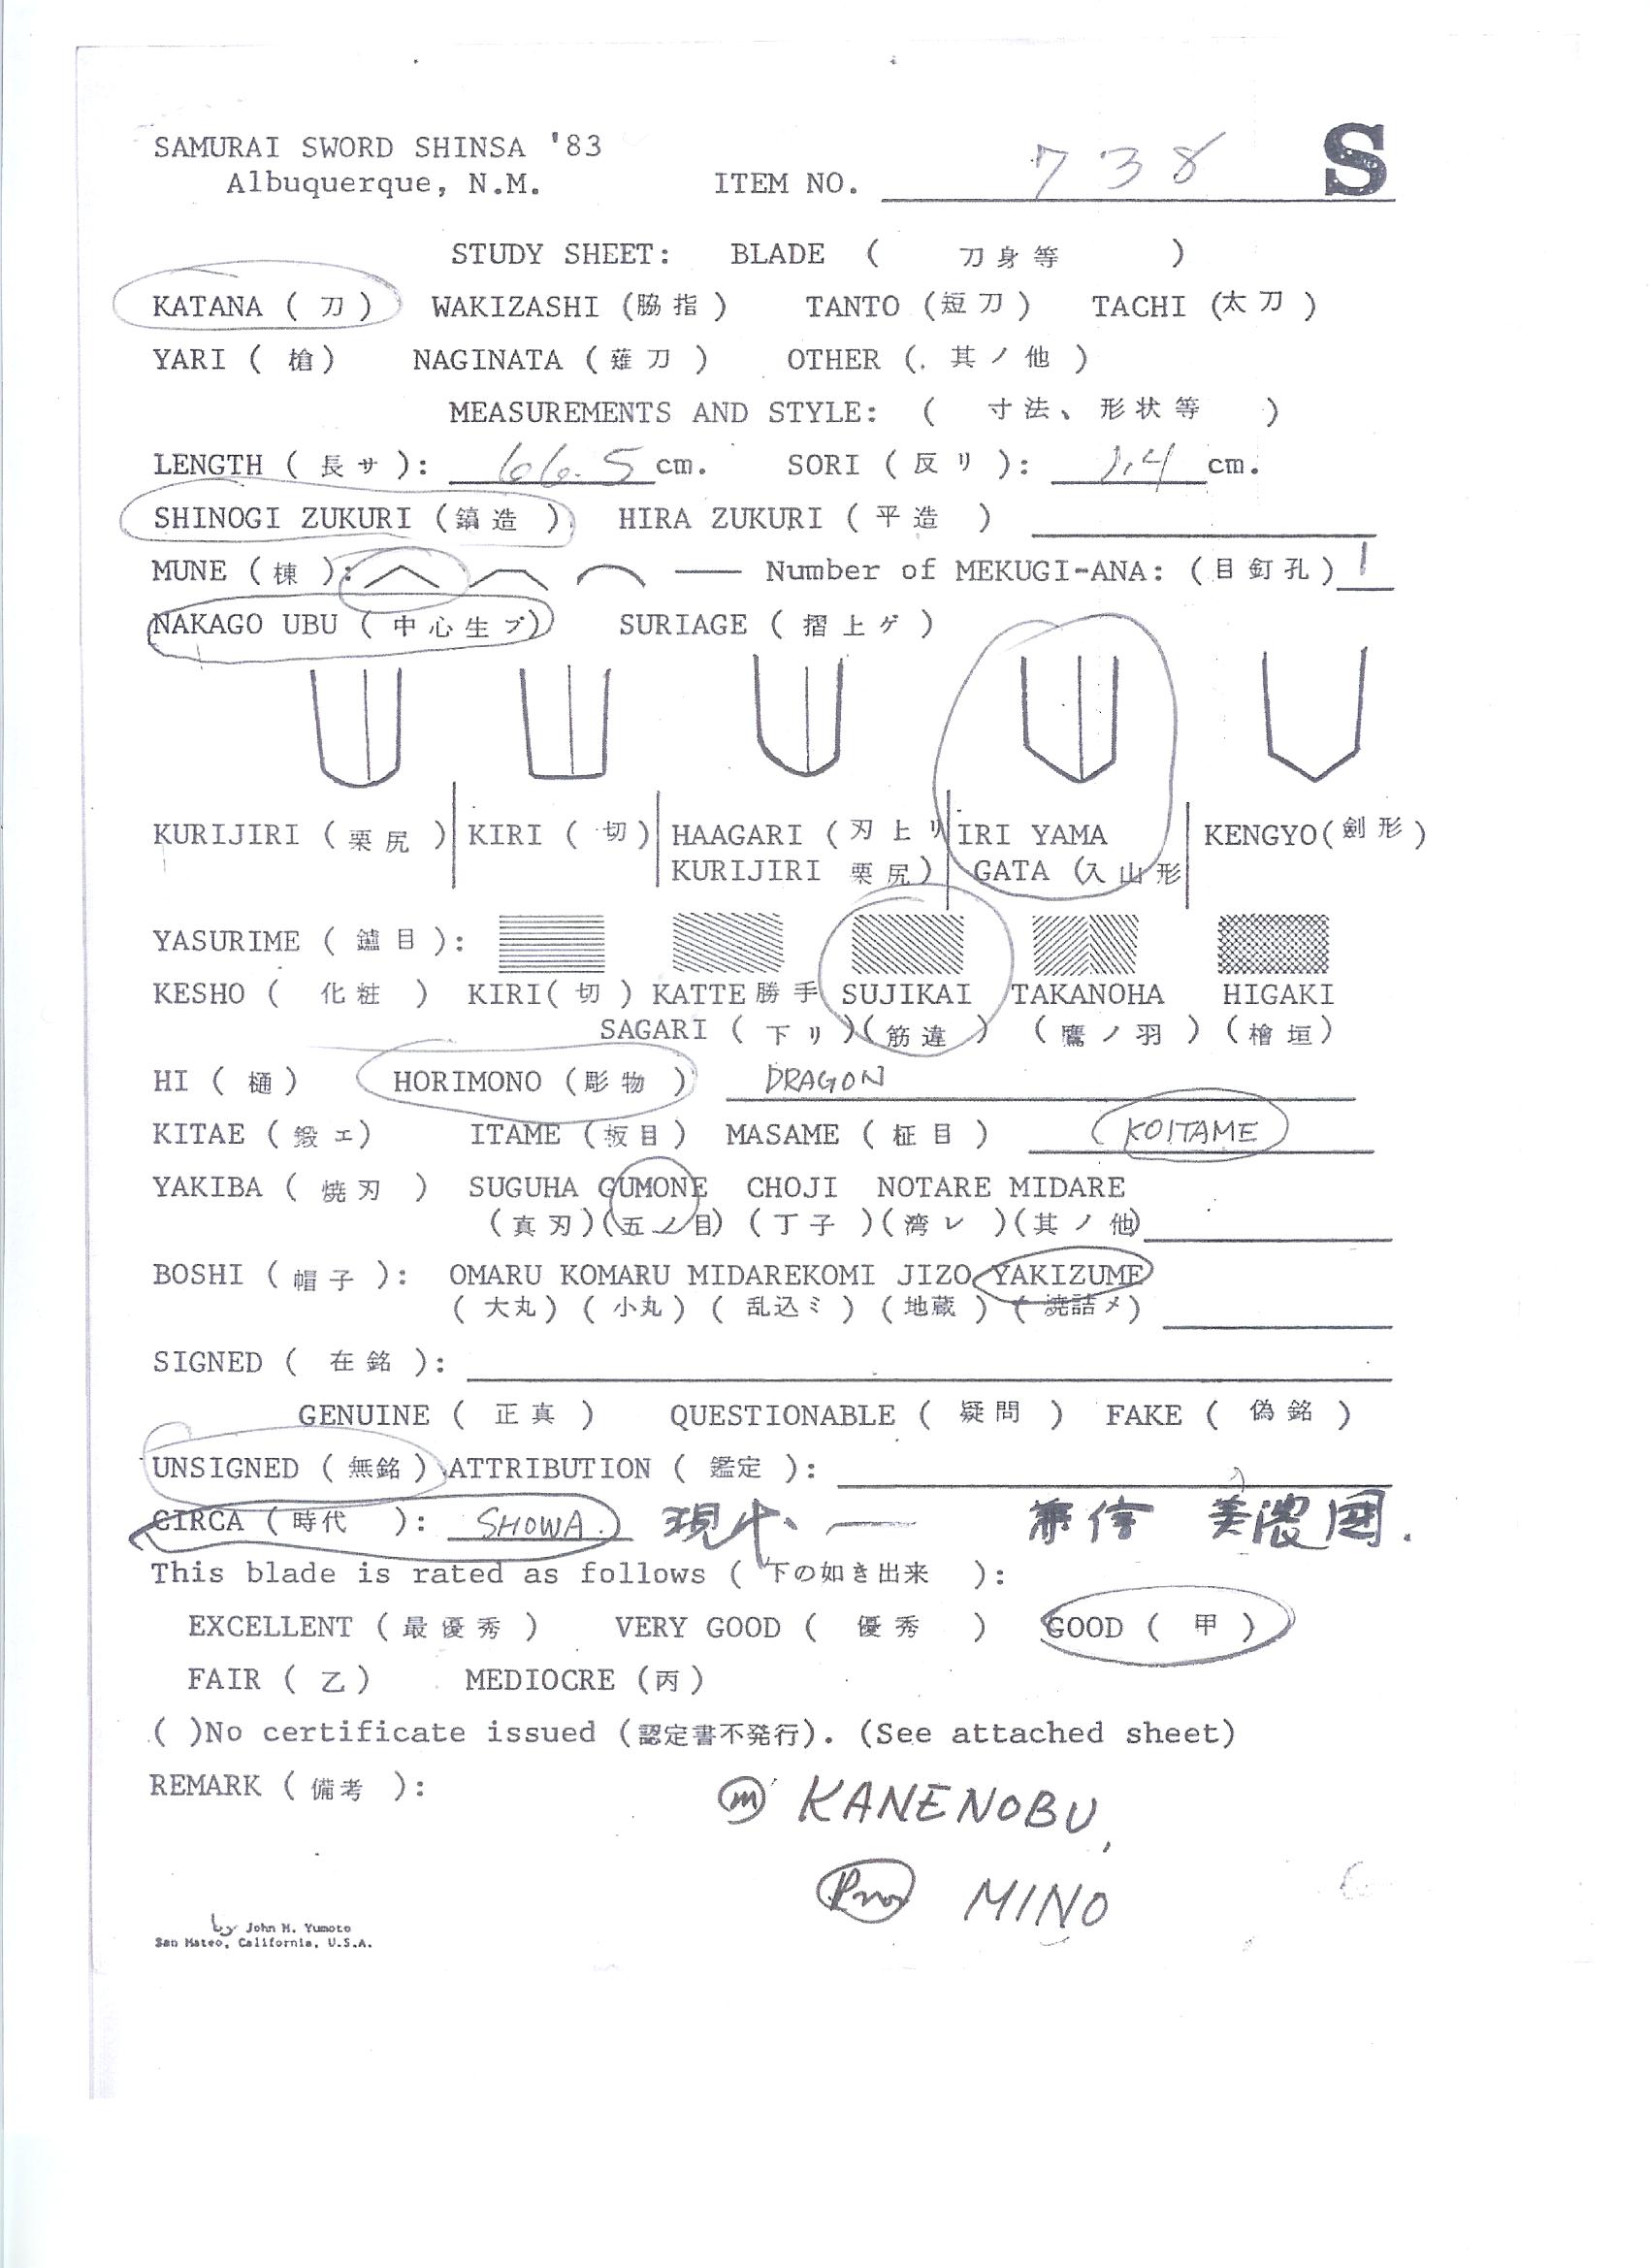 SAMURAI SWORD SHINSA '83
Albuquerque, N.M. ITEM NO. 738 S
STUDY SHEET: BLADE ( 刀身等 )
KATANA ( 刀 ) WAKIZASHI (脇指 ) TANTO (短刀 ) TACHI (太刀 )
YARI ( 槍 ) NAGINATA ( 薙刀 ) OTHER (. 其ノ他 )
MEASUREMENTS AND STYLE: ( 寸法、形状等 )
LENGTH ( 長サ ): 66.5 cm. SORI ( 反リ ): 1.4 cm.
SHINOGI ZUKURI ( 鎬造 ) HIRA ZUKURI ( 平造 )
MUNE ( 棟 ): Number of MEKUGI-ANA: (目釘孔) 1
NAKAGO UBU ( 中心生ブ) SURIAGE ( 摺上ゲ )
KURIJIRI ( 栗尻 ) KIRI ( 切 ) HAAGARI ( 刃上リ IRI YAMA KENGYO( 劍形 )
KURIJIRI 栗尻 ) GATA (入山形
YASURIME ( 鑢目 ):
KESHO ( 化粧 ) KIRI( 切 ) KATTE 勝手 SUJIKAI TAKANOHA HIGAKI
SAGARI ( 下リ )( 筋違 ) ( 鷹ノ羽 ) ( 檜垣 )
HI ( 樋 ) HORIMONO ( 彫物 ) DRAGON
KITAE ( 鍛エ ) ITAME ( 板目 ) MASAME ( 柾目 ) KOITAME
YAKIBA ( 焼刃 ) SUGUHA GUMONE CHOJI NOTARE MIDARE
( 真刃 )( 五ノ目) ( 丁子 )( 湾レ )( 其ノ他)
BOSHI ( 帽子 ): OMARU KOMARU MIDAREKOMI JIZO YAKIZUME
( 大丸 ) ( 小丸 ) ( 乱込ミ ) ( 地蔵 ) ( 焼詰メ )
SIGNED ( 在銘 ):
GENUINE ( 正真 ) QUESTIONABLE ( 疑問 ) FAKE ( 偽銘 )
UNSIGNED ( 無銘 ) ATTRIBUTION ( 鑑定 ):
CIRCA ( 時代 ): SHOWA. 現代 — 兼信 美濃国.
This blade is rated as follows ( 下の如き出来 ):
EXCELLENT ( 最優秀 ) VERY GOOD ( 優秀 ) GOOD ( 甲 )
FAIR ( 乙 ) MEDIOCRE (丙 )
( )No certificate issued (認定書不発行). (See attached sheet)
REMARK ( 備考 ):
m KANENOBU,
Prov MINO
by John H. Yumoto
San Mateo, California, U.S.A.